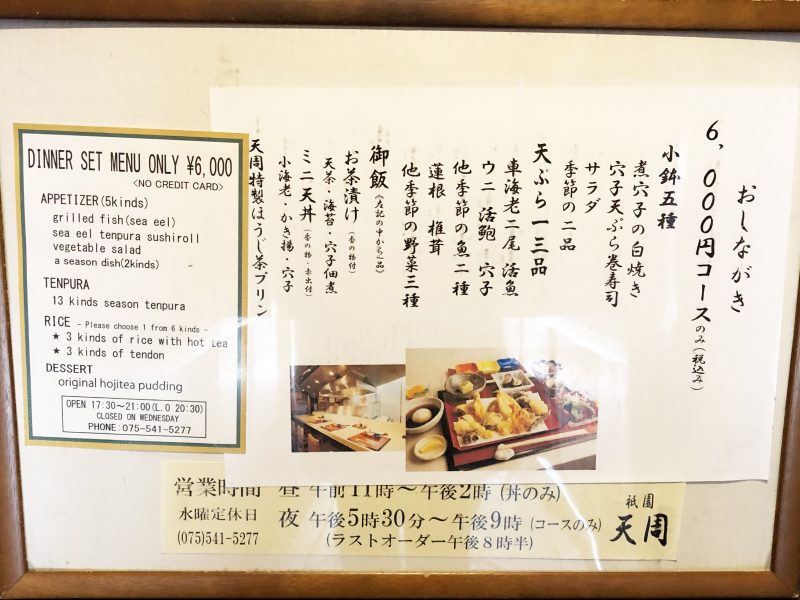 DINNER SET MENU ONLY ¥6,000
<NO CREDIT CARD>
APPETIZER(5kinds)
grilled fish(sea eel)
sea eel tenpura sushiroll
vegetable salad
a season dish(2kinds)
TENPURA
13 kinds season tenpura
RICE - Please choose 1 from 6 kinds -
★ 3 kinds of rice with hot tea
★ 3 kinds of tendon
DESSERT
original hojitea pudding
OPEN 17:30～21:00(L.O 20:30)
CLOSED ON WEDNESDAY
PHONE:075-541-5277
おしながき
6,000円コースのみ(税込み)
小鉢五種
煮穴子の白焼き
穴子天ぷら巻寿司
サラダ
季節の二品
天ぷら一三品
車海老二尾 活魚
ウニ 活鮑 穴子
他季節の魚二種
蓮根・椎茸
他季節の野菜三種
御飯(左記の中から一品)
お茶漬け(香の物付)
天茶・海苔・穴子佃煮
ミニ天丼(香の物、赤出付)
小海老・かき揚・穴子
天周特製ほうじ茶プリン
営業時間 昼 午前11時～午後2時 (丼のみ)
水曜定休日 夜 午後5時30分～午後9時 (コースのみ)
(075)541-5277 (ラストオーダー午後8時半)
祇園
天周